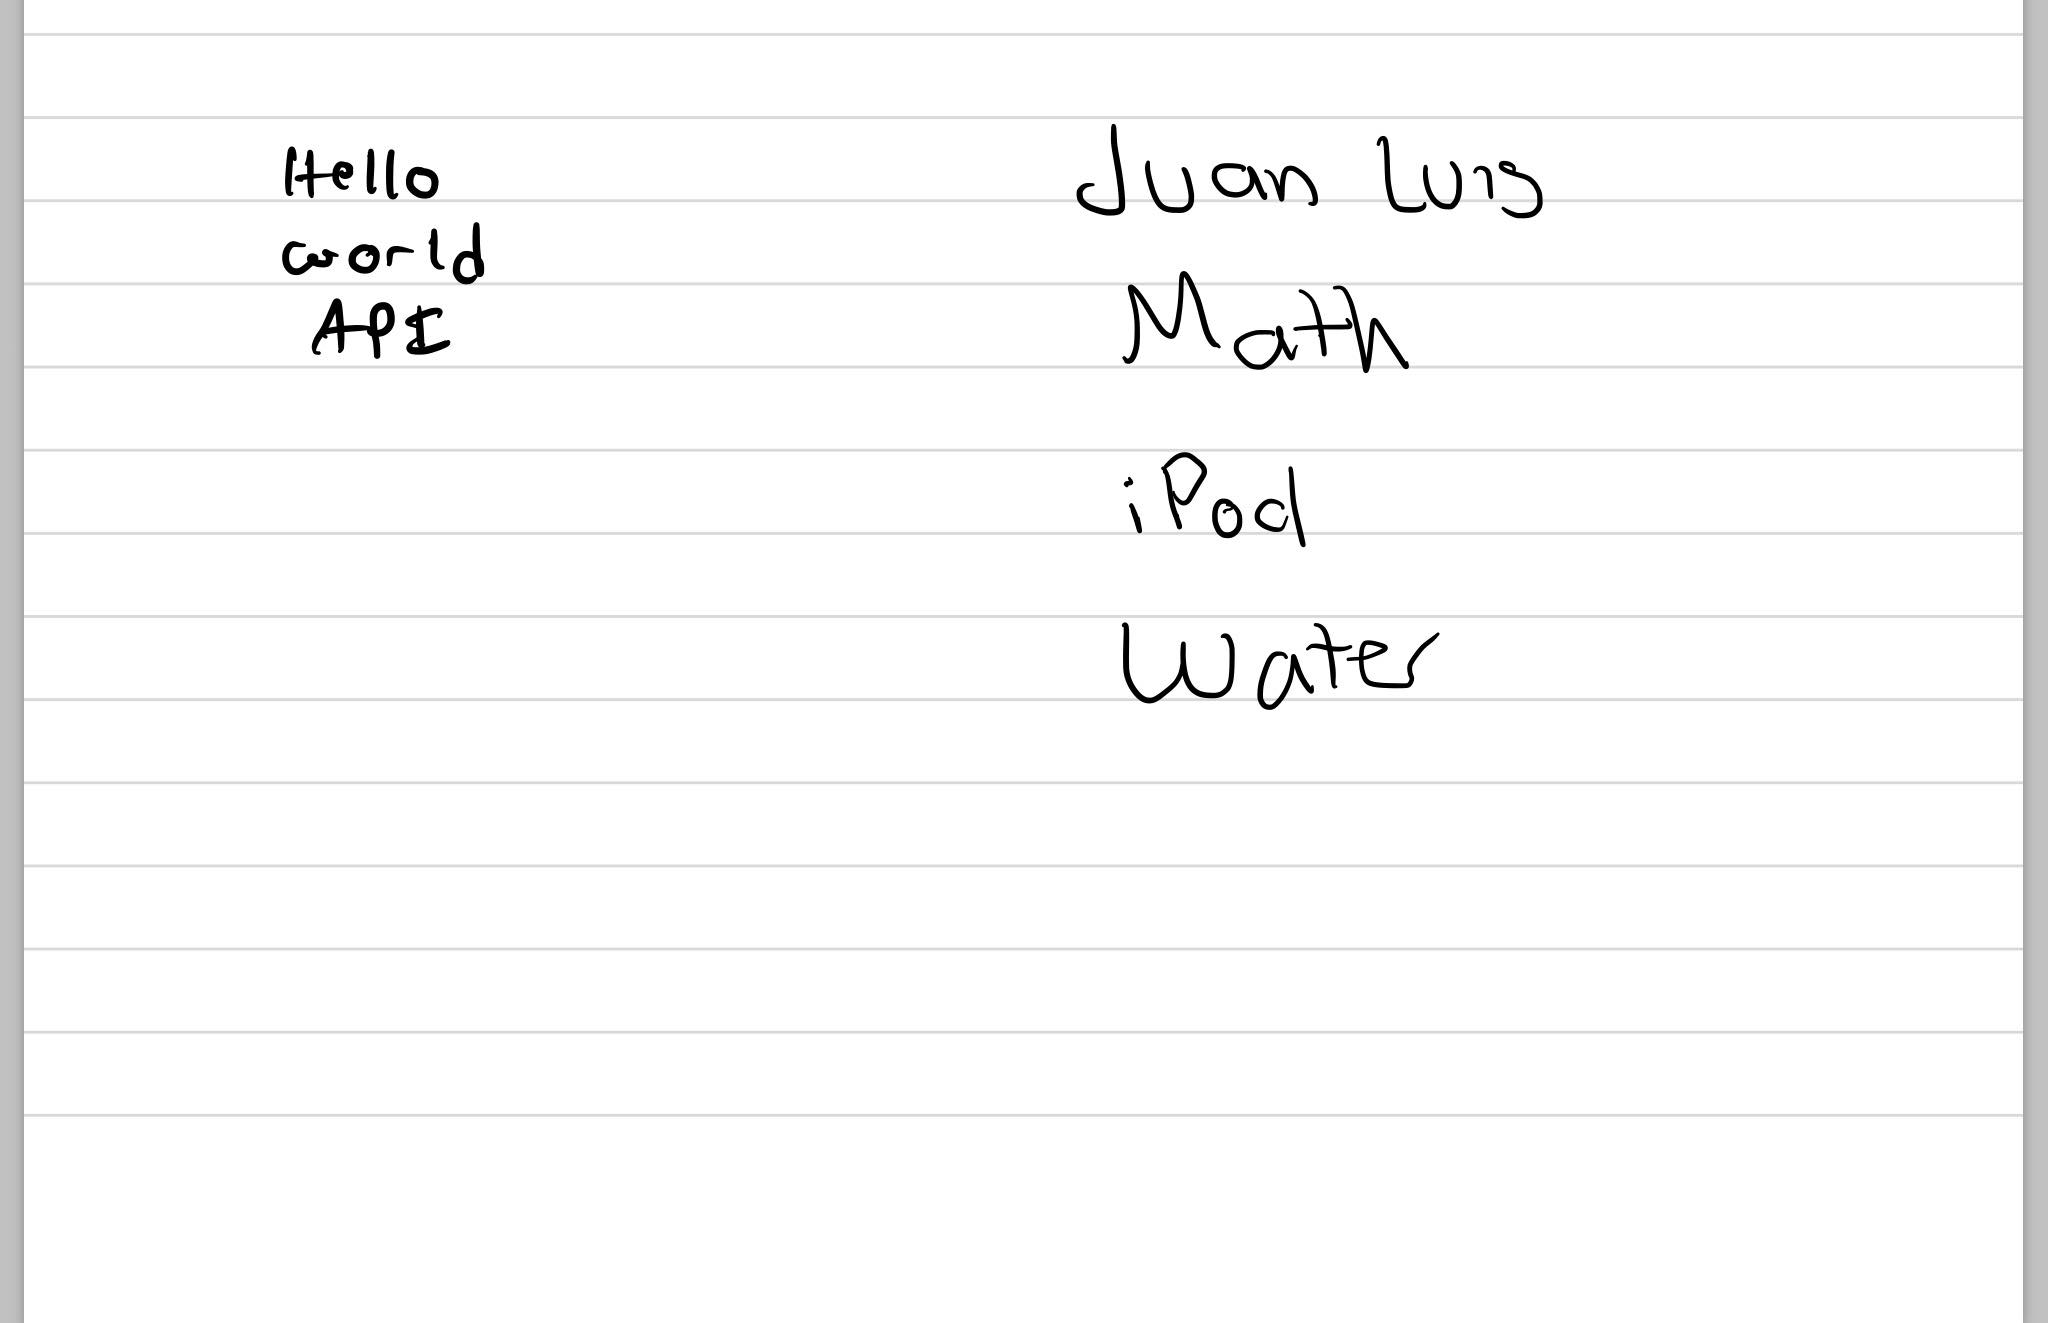 Hello
world
API
Juan Luis
Math
iPod
Water